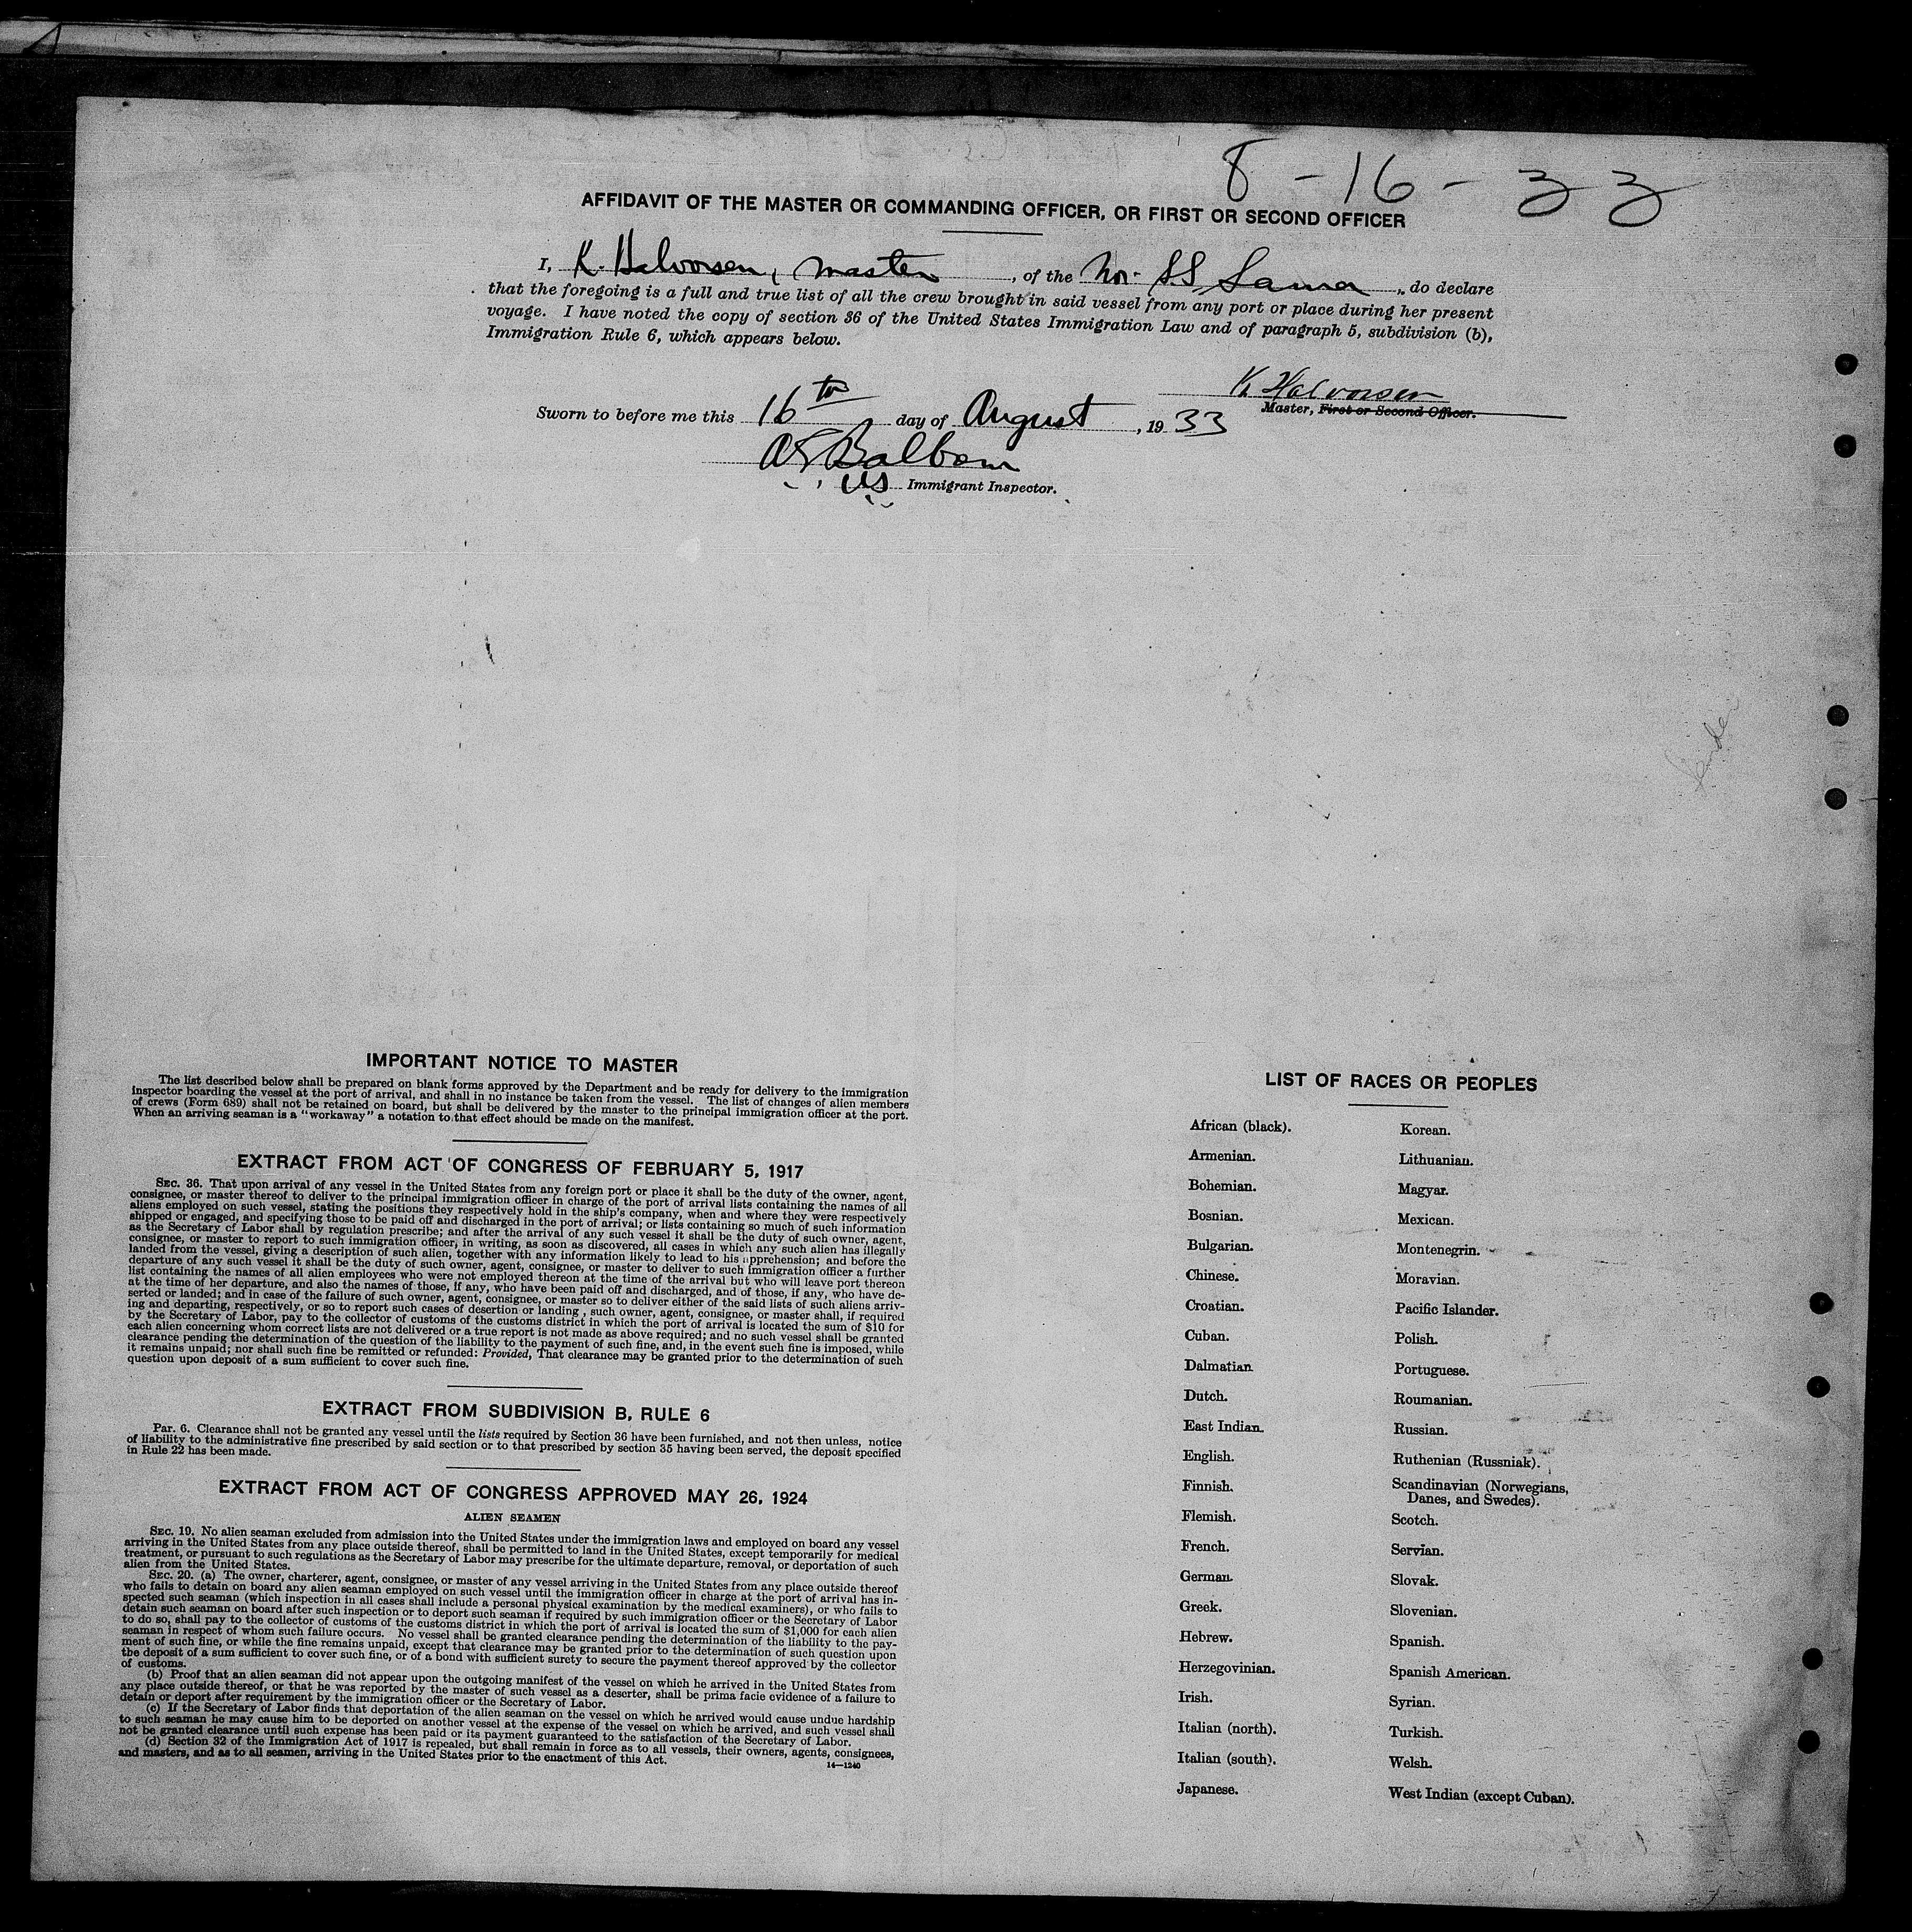 8-16-33
AFFIDAVIT OF THE MASTER OR COMMANDING OFFICER, OR FIRST OR SECOND OFFICER
I, K. Halvorsen, master, of the Nor. SS, do declare
that the foregoing is a full and true list of all the crew brought in said vessel from any port or place during her present
voyage. I have noted the copy of section 36 of the United States Immigration Law and of paragraph 5, subdivision (b),
Immigration Rule 6, which appears below.
K. Halvorsen
Master, First or Second Officer.
Sworn to before me this 16th day of August, 1933
US Immigrant Inspector.
IMPORTANT NOTICE TO MASTER
The list described below shall be prepared on blank forms approved by the Department and be ready for delivery to the immigration
inspector boarding the vessel at the port of arrival, and shall in no instance be taken from the vessel. The list of changes of alien members
of crews (Form 689) shall not be retained on board, but shall be delivered by the master to the principal immigration officer at the port.
When an arriving seaman is a "workaway" a notation to that effect should be made on the manifest.
EXTRACT FROM ACT OF CONGRESS OF FEBRUARY 5, 1917
SEC. 36. That upon arrival of any vessel in the United States from any foreign port or place it shall be the duty of the owner, agent,
consignee, or master thereof to deliver to the principal immigration officer in charge of the port of arrival lists containing the names of all
aliens employed on such vessel, stating the positions they respectively hold in the ship's company, when and where they were respectively
shipped or engaged, and specifying those to be paid off and discharged in the port of arrival; or lists containing so much of such information
as the Secretary of Labor shall by regulation prescribe; and after the arrival of any such vessel it shall be the duty of such owner, agent,
consignee, or master to report to such immigration officer, in writing, as soon as discovered, all cases in which any such alien has illegally
landed from the vessel, giving a description of such alien, together with any information likely to lead to his apprehension; and before the
departure of any such vessel it shall be the duty of such owner, agent, consignee, or master to deliver to such immigration officer a further
list containing the names of all alien employees who were not employed thereon at the time of the arrival but who will leave port thereon
at the time of her departure, and also the names of those, if any, who have been paid off and discharged, and of those, if any, who have de-
serted or landed; and in case of the failure of such owner, agent, consignee, or master so to deliver either of the said lists of such aliens arriv-
ing and departing, respectively, or so to report such cases of desertion or landing, such owner, agent, consignee, or master shall, if required
by the Secretary of Labor, pay to the collector of customs of the customs district in which the port of arrival is located the sum of $10 for
each alien concerning whom correct lists are not delivered or a true report is not made as above required; and no such vessel shall be granted
clearance pending the determination of the question of the liability to the payment of such fine, and, in the event such fine is imposed, while
it remains unpaid; nor shall such fine be remitted or refunded: Provided, That clearance may be granted prior to the determination of such
question upon deposit of a sum sufficient to cover such fine.
EXTRACT FROM SUBDIVISION B, RULE 6
Par. 6. Clearance shall not be granted any vessel until the lists required by Section 36 have been furnished, and not then unless, notice
of liability to the administrative fine prescribed by said section or to that prescribed by section 35 having been served, the deposit specified
in Rule 22 has been made.
EXTRACT FROM ACT OF CONGRESS APPROVED MAY 26, 1924
ALIEN SEAMEN
SEC. 19. No alien seaman excluded from admission into the United States under the immigration laws and employed on board any vessel
arriving in the United States from any place outside thereof, shall be permitted to land in the United States, except temporarily for medical
treatment, or pursuant to such regulations as the Secretary of Labor may prescribe for the ultimate departure, removal, or deportation of such
alien from the United States.
SEC. 20. (a) The owner, charterer, agent, consignee, or master of any vessel arriving in the United States from any place outside thereof
who fails to detain on board any alien seaman employed on such vessel until the immigration officer in charge at the port of arrival has in-
spected such seaman (which inspection in all cases shall include a personal physical examination by the medical examiners), or who fails to
detain such seaman on board after such inspection or to deport such seaman if required by such immigration officer or the Secretary of Labor
to do so, shall pay to the collector of customs of the customs district in which the port of arrival is located the sum of $1,000 for each alien
seaman in respect of whom such failure occurs. No vessel shall be granted clearance pending the determination of the liability to the pay-
ment of such fine, or while the fine remains unpaid, except that clearance may be granted prior to the determination of such question upon
the deposit of a sum sufficient to cover such fine, or of a bond with sufficient surety to secure the payment thereof approved by the collector
of customs.
(b) Proof that an alien seaman did not appear upon the outgoing manifest of the vessel on which he arrived in the United States from
any place outside thereof, or that he was reported by the master of such vessel as a deserter, shall be prima facie evidence of a failure to
detain or deport after requirement by the immigration officer or the Secretary of Labor.
(c) If the Secretary of Labor finds that deportation of the alien seaman on the vessel on which he arrived would cause undue hardship
to such seaman he may cause him to be deported on another vessel at the expense of the vessel on which he arrived, and such vessel shall
not be granted clearance until such expense has been paid or its payment guaranteed to the satisfaction of the Secretary of Labor.
(d) Section 32 of the Immigration Act of 1917 is repealed, but shall remain in force as to all vessels, their owners, agents, consignees,
and masters, and as to all seamen, arriving in the United States prior to the enactment of this Act.
14—1240
LIST OF RACES OR PEOPLES
African (black).
Armenian.
Bohemian.
Bosnian.
Bulgarian.
Chinese.
Croatian.
Cuban.
Dalmatian.
Dutch.
East Indian.
English.
Finnish.
Flemish.
French.
German.
Greek.
Hebrew.
Herzegovinian.
Irish.
Italian (north).
Italian (south).
Japanese.
Korean.
Lithuanian.
Magyar.
Mexican.
Montenegrin.
Moravian.
Pacific Islander.
Polish.
Portuguese.
Roumanian.
Russian.
Ruthenian (Russniak).
Scandinavian (Norwegians,
Danes, and Swedes).
Scotch.
Servian.
Slovak.
Slovenian.
Spanish.
Spanish American.
Syrian.
Turkish.
Welsh.
West Indian (except Cuban).